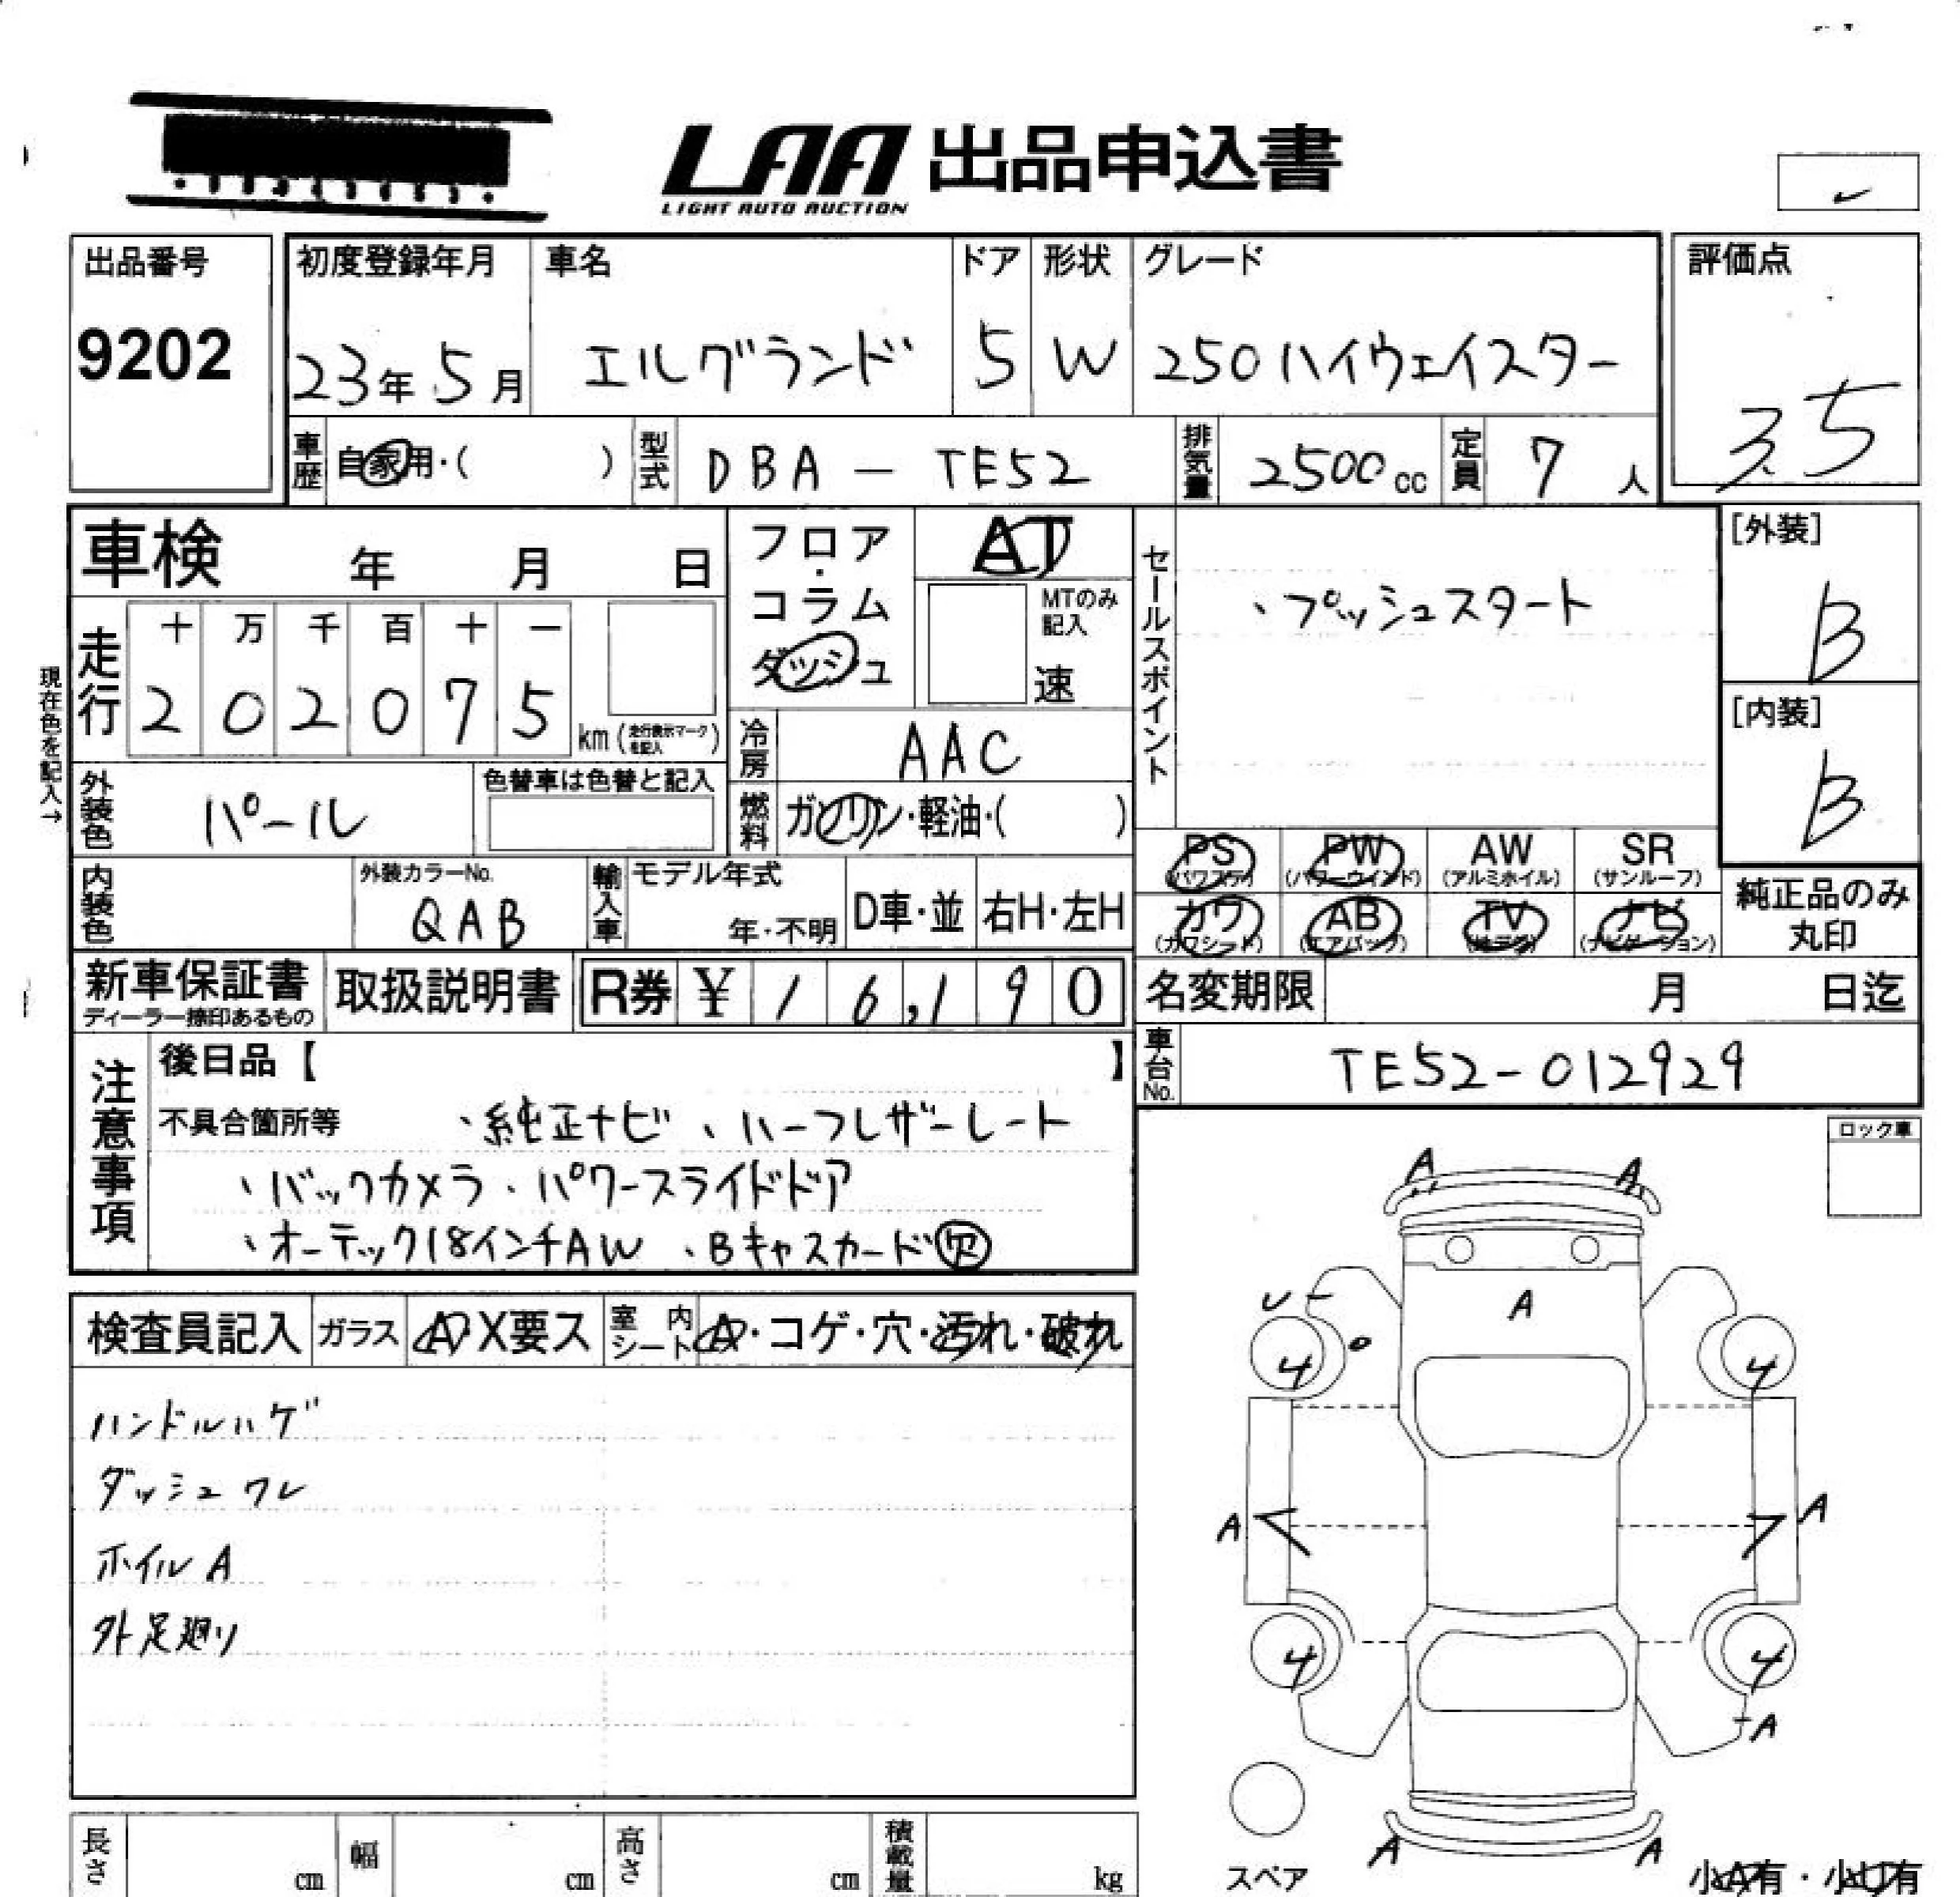 LAA 出品申込書
LIGHT AUTO AUCTION
出品番号
9202
初度登録年月
23年5月
車名
エルグランド
ドア
5
形状
W
グレード
250ハイウェイスター
評価点
3.5
車歴
自家用・( )
型式
DBA-TE52
排気量
2500cc
定員
7人
車検 年 月 日
フロア・コラム
ダッシュ
AT
MTのみ記入
速
セールスポイント
、プッシュスタート
[外装]
B
[内装]
B
現在色を記入→
走行
十 万 千 百 十 一
2 0 2 0 7 5
km(走行表示マークを記入)
冷房
AAC
外装色
パール
色替車は色替と記入
燃料
ガソリン・軽油・( )
内装色
外装カラーNo.
QAB
輸入車
モデル年式
年・不明
D車・並
右H・左H
PS
(パワステ)
PW
(パワーウインド)
AW
(アルミホイル)
SR
(サンルーフ)
カワ
(カワシート)
AB
(エアバック)
TV
(地デジ)
ナビ
(ナビゲーション)
純正品のみ
丸印
新車保証書
ディーラー捺印あるもの
取扱説明書
R券 ¥ 16,190
名変期限 月 日迄
車台No.
TE52-012929
注意事項
後日品【 】
不具合箇所等 、純正ナビ 、ハーフレザーシート
、バックカメラ 、パワースライドドア
、オーテック18インチAW 、Bキャスカード欠
ロック車
検査員記入
ガラス
A・X要ス
室内シート
A・コゲ・穴・汚れ・破れ
ハンドルハゲ
ダッシュワレ
ホイルA
外足廻り
A A
A
4 4
A A
4 4
A
A A
スペア
小A有・小U有
長さ cm
幅 cm
高さ cm
積載量 kg